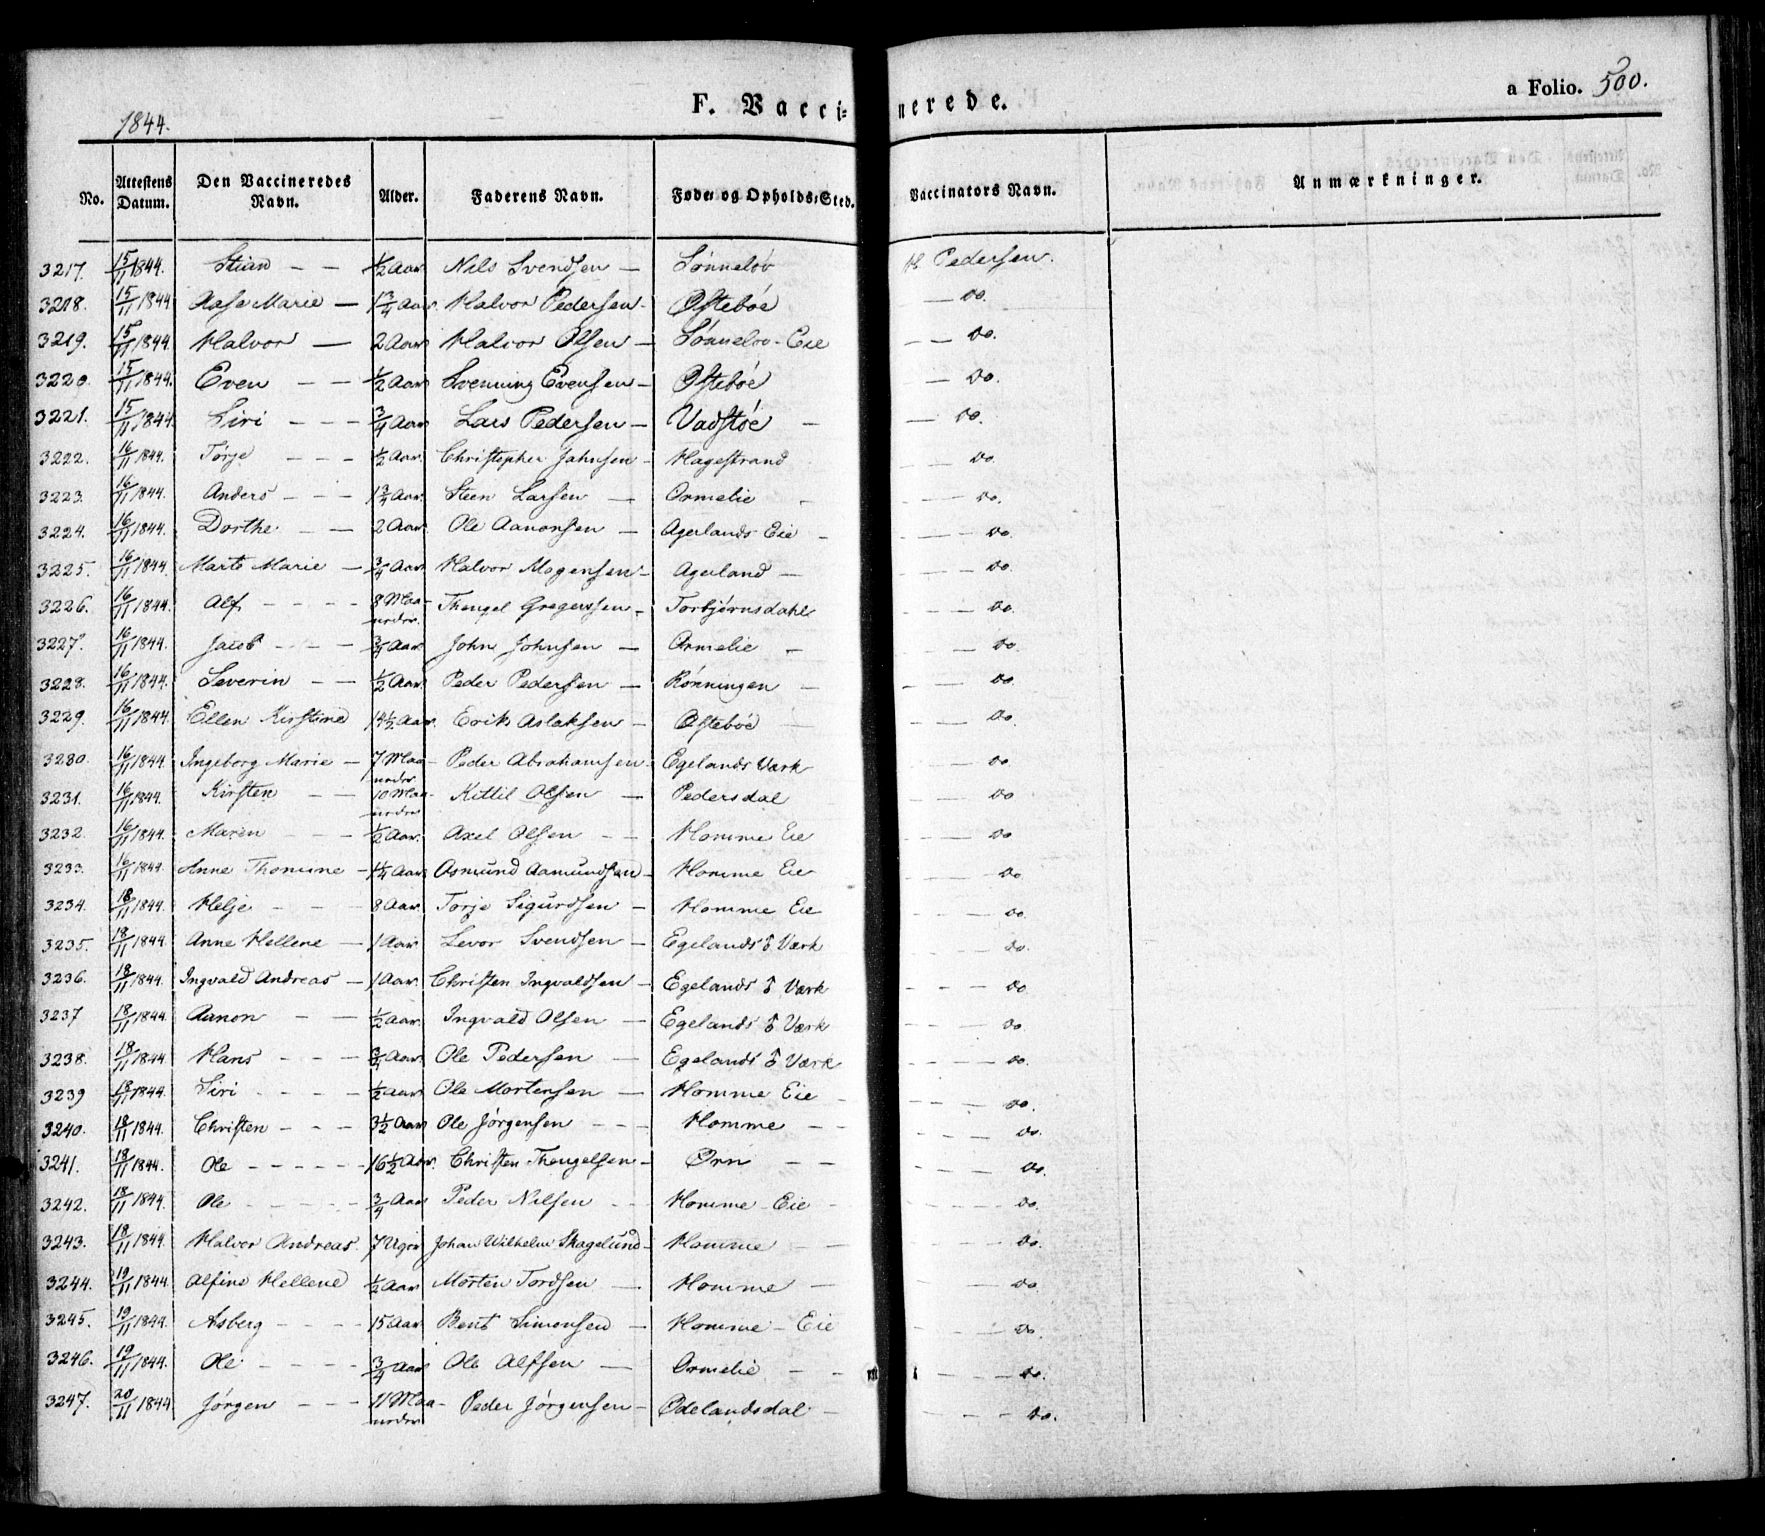 1844.
F. Vaccinerede.
a Folio. 500.
No. Attestens Datum. Den Vaccineredes Navn. Alder. Faderens Navn. Føde- og Opholds-Sted. Vaccinators Navn. Anmærkninger.
3217. 15/11 1844. Stian — — ½ Aar Nils Svendsen — Sønneløv H. Pedersen.
3218. 15/11 1844 Aase Marie — 1¾ Aar. Halvor Pedersen - Østebøe — Do.
3219. 15/11 1844 Halvor — 2 Aar Halvor Olsen — Sønneløv - Eie — — Do.
3220. 15/11 1844. Even — — ½ Aar Svenning Evensen — Østebøe — Do.
3221. 15/11 1844 Siri — — — ¾ Aar Lars Pedersen — Vadstøe — — Do.
3222. 16/11 1844. Tørje — — — ½ Aar. Christopher Jahnsen — Hagestrand — — — Do.
3223. 16/11 1844. Anders — — — 1¾ Aar. Steen Larsen — Ormelie — — — — Do.
3224. 16/11 1844. Dorthe. — — 2 Aar. Ole Aanonsen — Agerlands Eie — — — — Do.
3225. 16/11 1844. Marte Marie — ¾ Aar Halvor Mogensen — Agerland — — — — Do.
3226. 16/11 1844. Alf — — — — 8 Maaneder. Thengel Gregersen — Torbjørnsdahl — — — Do.
3227. 16/11 1844. Jacob — — — ¾ Aar John Johnsen — Ormelie — — — — Do.
3228. 16/11 1844. Severin — — ½ Aar. Peder Pedersen — Rønningen — — — — Do.
3229. 16/11 1844. Ellen Kirstine 14½ Aar. Erik Aslaksen — Østebøe — — — — Do.
3230. 16/11 1844. Ingeborg Marie — 7 Maaneder Peder Abrahamsen. Egelands Værk — — — Do
3231. 16/11 1844. Kirsten — — 10 Maaneder Kittil Olsen — Pedersdal — — — Do
3232. 16/11 1844. Maren — — — ½ Aar. Axel Olsen — — Homme Eie — — — Do
3233. 16/11 1844. Anne Thomine — 1¼ Aar Asmund Aamundsen — Homme Eie — — — Do
3234. 18/11 1844. Helje — — — 8 Aar. Torje Sigurdsen — Homme Eie — — — Do.
3235. 18/11 1844. Anne Hellene — 1 Aar Levor Svendsen — Egelands Værk — — — Do.
3236. 18/11 1844. Ingvald Andreas — 1 Aar. Christen Ingvaldsen — Egelands Værk — — — Do
3237 18/11 1844. Aanon — — ½ Aar. Ingvald Olsen — Egelands Værk — — — Do.
3238. 18/11 1844. Hans — — — ¾ Aar. Ole Pedersen — Egelands Værk — — — Do.
3239 18/11 1844. Siri — — — ½ Aar Ole Mortensen — Homme Eie — — — — Do.
3240. 18/11 1844. Christen — — — 3½ Aar Ole Jørgensen — — — Homme — — — — — Do.
3241. 18/11 1844. Ole — — — — — 16½ Aar. Christen Thengelsen — Ørn — — — — — Do.
3242. 18/11 1844. Ole — — — — ¾ Aar Peder Nilsen — — Homme - Eie — — — — Do.
3243. 18/11 1844. Halvor Andreas 7 Uger Johan Wilhelm Skagelund — Homme — — — — Do.
3244. 19/11 1844 Alfine Hellene ½ Aar Morten Tordsen — Homme — — — — Do.
3245. 19/11 1844. Asberg — — — — 15 Aar Bent Simonsen — Homme - Eie — — — — Do.
3246. 19/11 1844. Ole — — — — ¾ Aar Ole Alfsen — Ormelie — — — — — Do.
3247. 20/11 1844 Jørgen — — — 11 Maaneder Peder Jørgensen — Ødelandsdal — — — — Do.